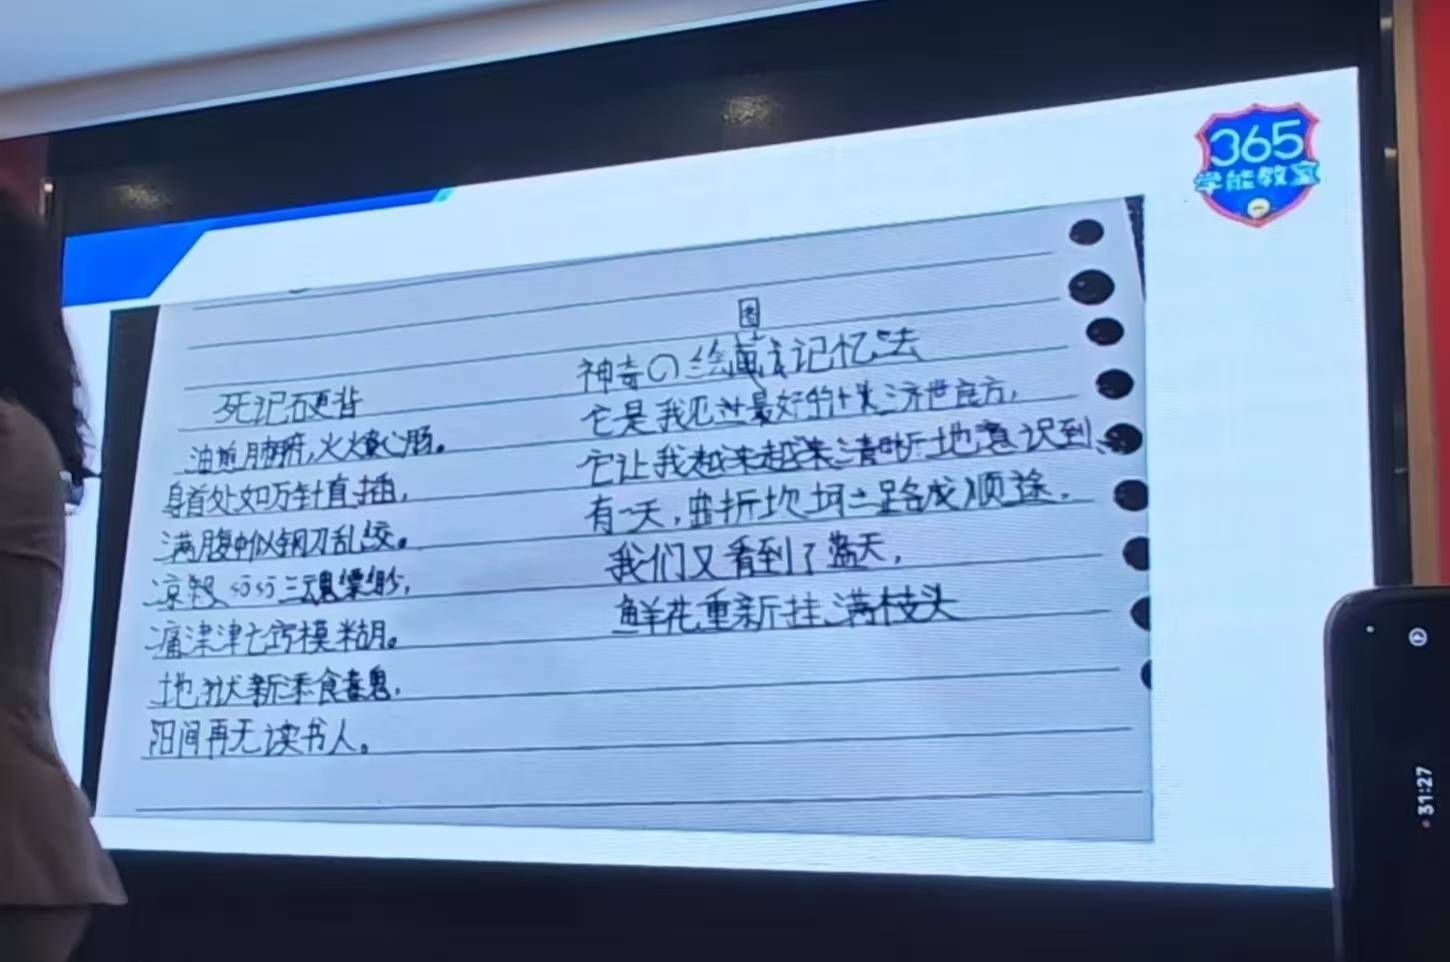 365
学能教室
死记硬背
油煎肺腑,火燎心肠。
身首处如万针直插,
满腹中似钢刀乱绞。
凉飕飕三魂缥缈,
痛津津七窍模糊。
地狱新添食毒鬼,
阳间再无读书人。
图
神奇の绘画记忆法
它是我见过最好的济世良方,
它让我越来越清晰地意识到、
有一天,曲折坎坷之路成顺途。
我们又看到了蓝天,
鲜花重新挂满枝头
31:27